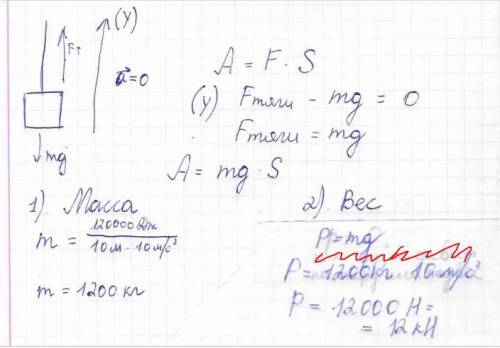 (y)
Fт
a⃗=0
mg
A = F · S
(y) Fтяги - mg = 0
Fтяги = mg
A = mg · S
1) Масса
m = 120000Дж / 10м · 10м/с²
m = 1200 кг
2) Вес
P = mg
P = 1200кг · 10м/с²
P = 12000 Н =
= 12кН